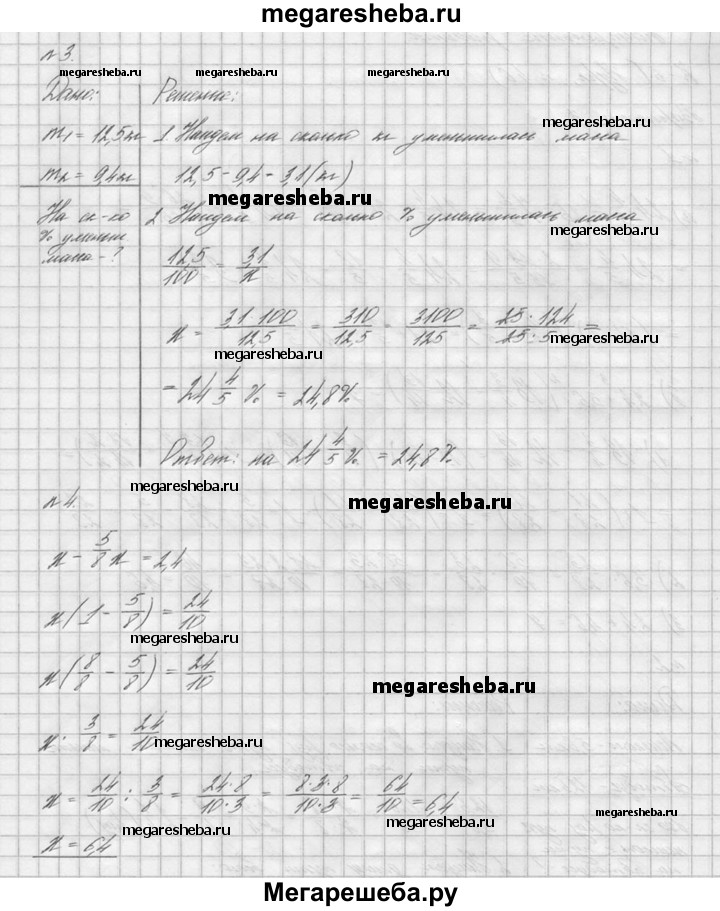 megaresheba.ru
№3.
megaresheba.ru megaresheba.ru megaresheba.ru
Дано: Решение:
m₁ = 12,5кг 1 Найдем на сколько кг уменьшилась масса
megaresheba.ru
m₂ = 9,4кг 12,5 - 9,4 = 3,1 (кг)
megaresheba.ru
На ск-ко 2 Найдем на сколько % уменьшилась масса
% уменьш. megaresheba.ru
масса - ?
12,5/100 = 3,1/x
x = 3,1·100/12,5 = 310/12,5 = 3100/125 = 25·124/25·5 =
megaresheba.ru megaresheba.ru
= 24 4/5 % = 24,8%
Ответ: на 24 4/5 % = 24,8%
megaresheba.ru
№4. megaresheba.ru
x - 5/8 x = 2,4
megaresheba.ru
x(1 - 5/8) = 24/10
megaresheba.ru
x(8/8 - 5/8) = 24/10
megaresheba.ru
x · 3/8 = 24/10
megaresheba.ru
x = 24/10 : 3/8 = 24·8/10·3 = 8·3·8/10·3 = 64/10 = 6,4
megaresheba.ru megaresheba.ru megaresheba.ru
x = 6,4
Мегарешеба.ру